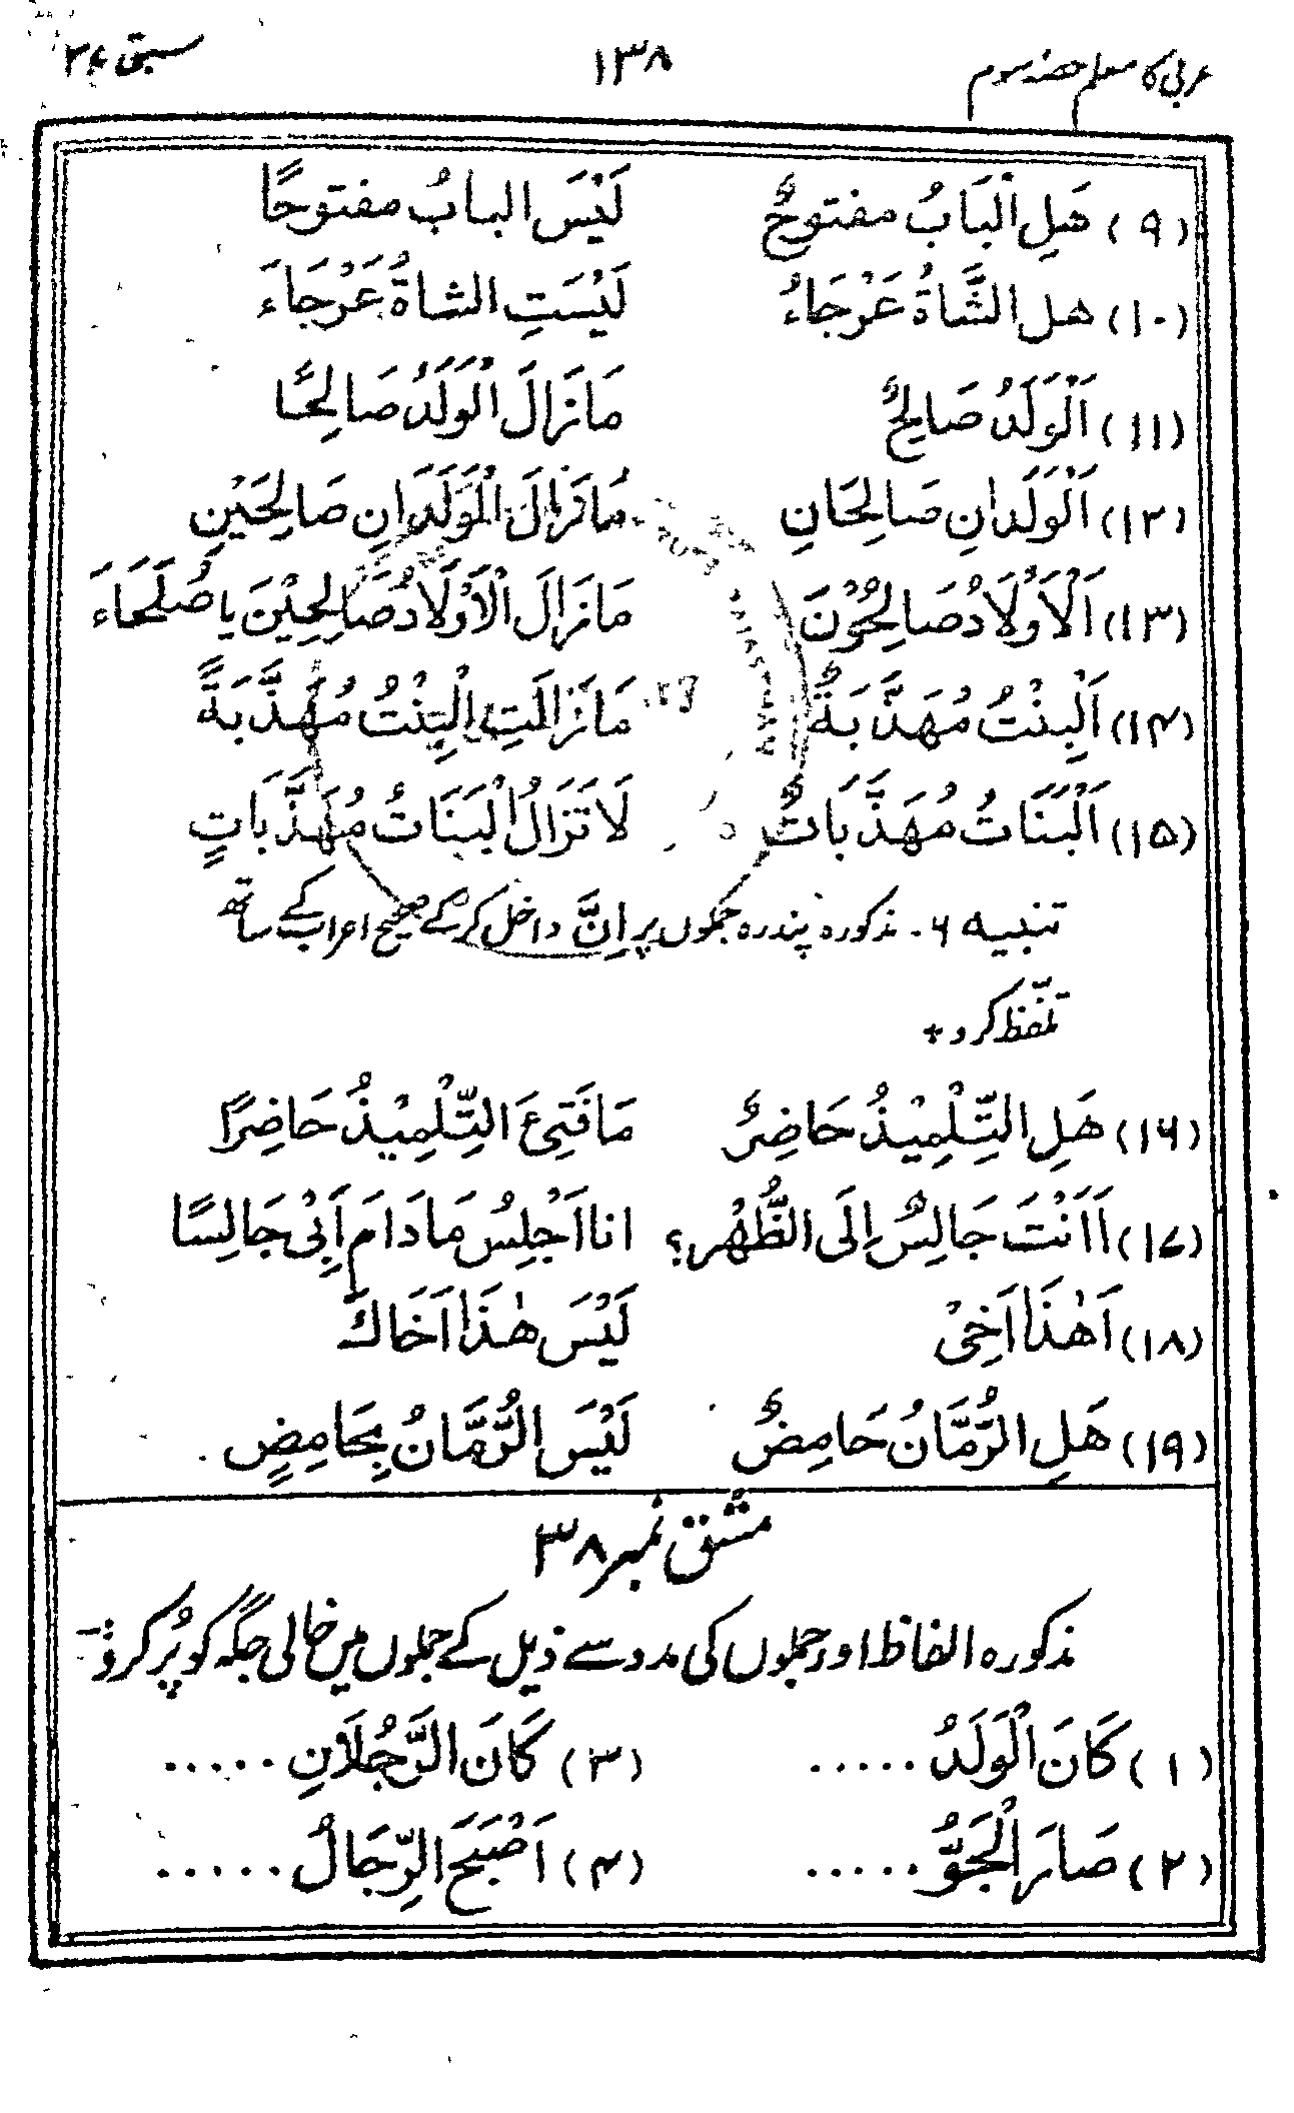 عربی کا معلم حصہ سوم ۱۳۸ سبق ۳۶
(۹) هَلِ الْبَابُ مفتوحٌ لَيْسَ البابُ مفتوحًا
(۱۰) هل الشَّاةُ عَرْجَاءُ لَيْسَتِ الشاةُ عَرْجَاءَ
(۱۱) اَلْوَلَدُ صَالِحٌ مَا زَالَ الْوَلَدُ صَالِحًا
(۱۲) اَلْوَلَدَانِ صَالِحَانِ مَا زَالَ الْوَلَدَانِ صَالِحَيْنِ
(۱۳) اَلْاَوْلَادُ صَالِحُوْنَ مَا زَالَ الْاَوْلَادُ صَالِحِيْنَ یا صُلَحَاءَ
(۱۴) اَلْبِنْتُ مُهَذَّبَةٌ مَا زَالَتِ الْبِنْتُ مُهَذَّبَةً
(۱۵) اَلْبَنَاتُ مُهَذَّبَاتٌ لَا تَزَالُ الْبَنَاتُ مُهَذَّبَاتٍ
تنبیہ ۶۔ مذکورہ پندرہ جملوں پر اِنَّ داخل کرکے صحیح اعراب کے ساتھ
تلفّظ کرو +
(۱۶) هَلِ التِّلْمِيْذُ حَاضِرٌ مَا فَتِئَ التِّلْمِيْذُ حَاضِرًا
(۱۷) اَاَنْتَ جَالِسٌ اِلَى الظُّهْرِ؟ انا اَجْلِسُ مَا دَامَ اَبِيْ جَالِسًا
(۱۸) اَهٰذَا اَخِيْ لَيْسَ هٰذَا اَخَاكَ
(۱۹) هَلِ الرُّمَّانُ حَامِضٌ لَيْسَ الرُّمَّانُ بِحَامِضٍ
مشق نمبر ۳۸
مذکورہ الفاظ اور جملوں کی مدد سے ذیل کے جملوں میں خالی جگہ کو پُر کرو:-
(۱) كَانَ الْوَلَدُ ..... (۳) كَانَ الرَّجُلَانِ .....
(۲) صَارَ الْجَوُّ ..... (۴) اَصْبَحَ الرِّجَالُ ......